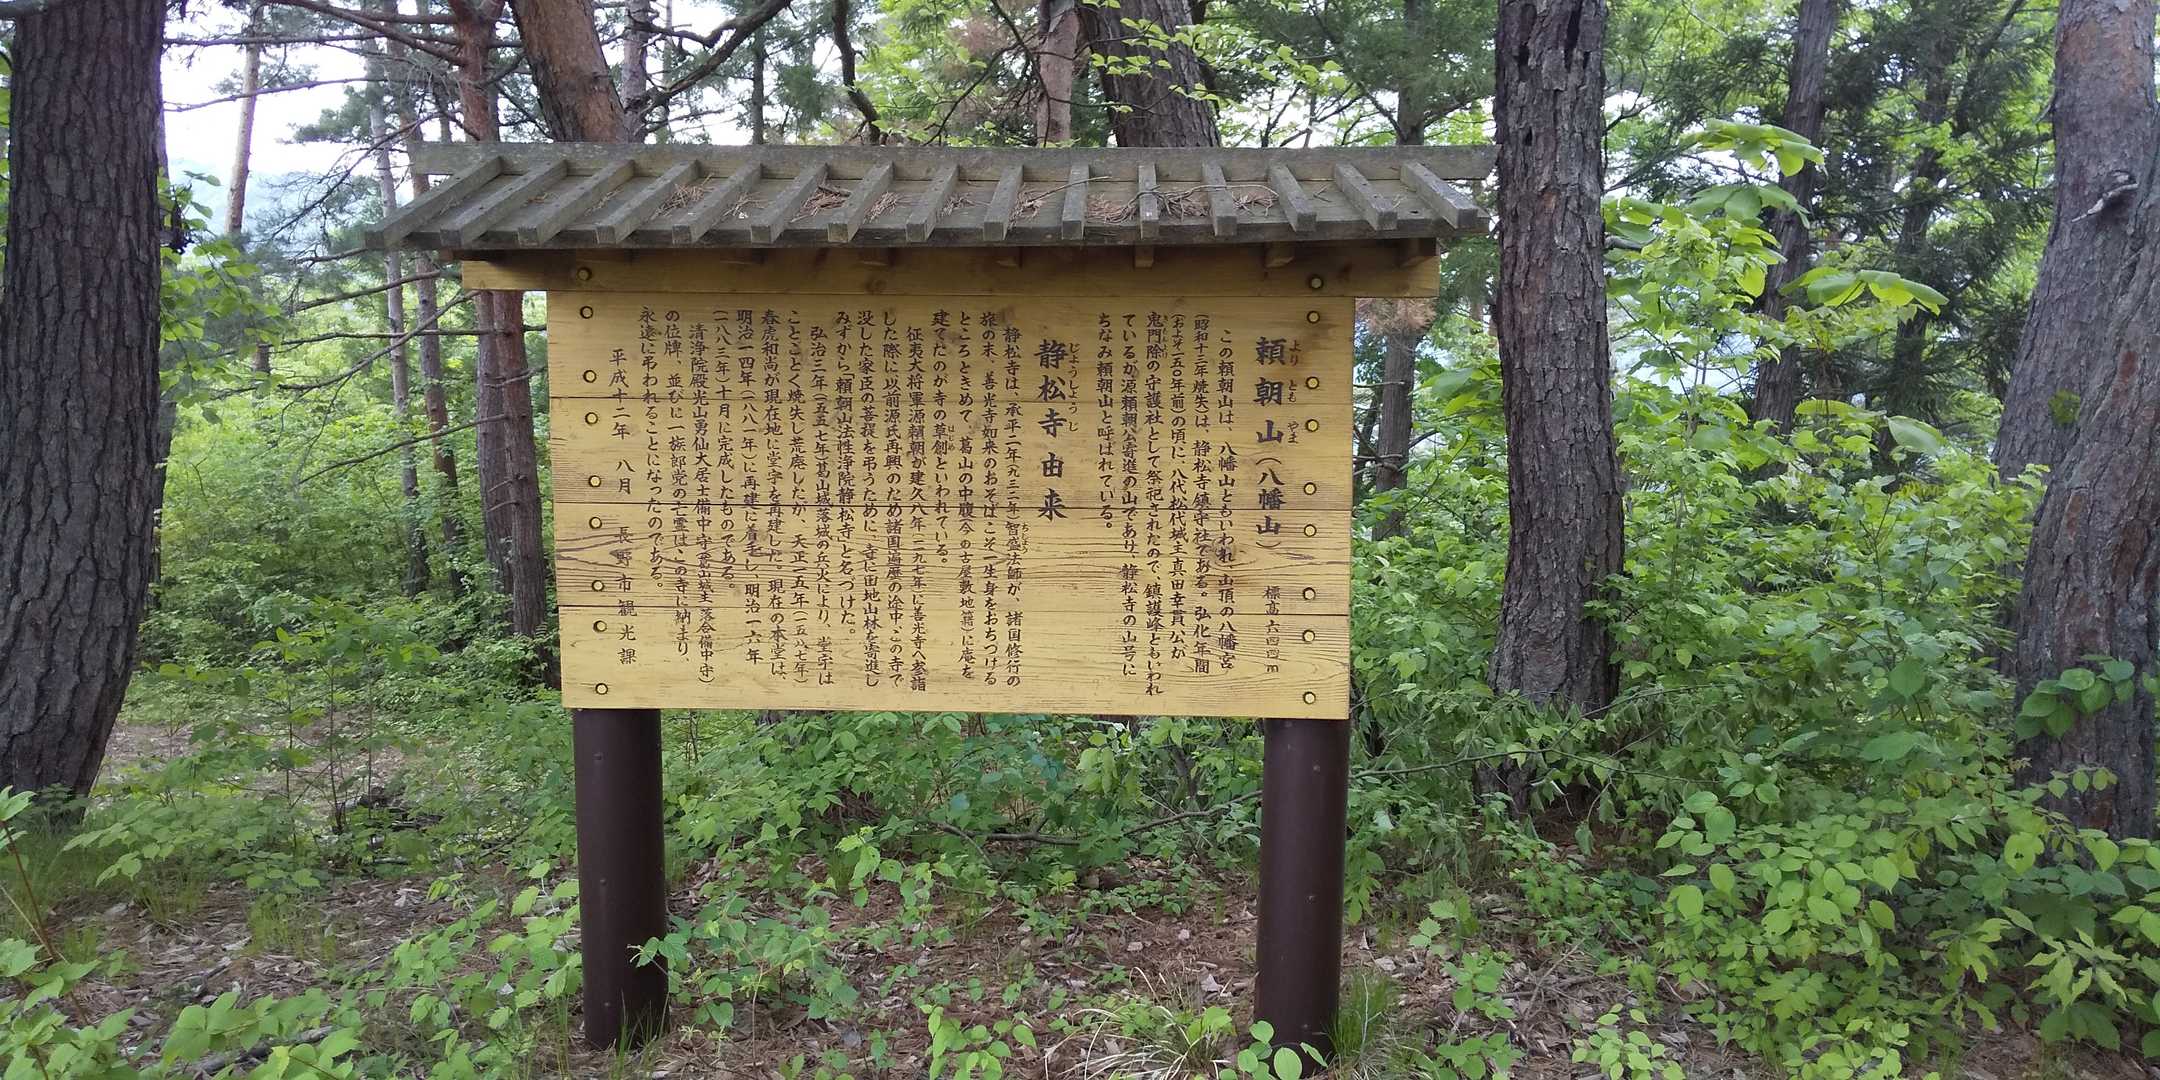 頼朝山(八幡山) 標高六四四m
この頼朝山は、八幡山ともいわれ、山頂の八幡宮、
(昭和十三年焼失)は、静松寺鎮守社である。弘化年間
(およそ一五〇年前)の頃に、八代松代城主真田幸貫公が
鬼門除の守護社として祭祀されたので、鎮護峰ともいわれ
ているが源頼朝公寄進の山であり、静松寺の山号に
ちなみ頼朝山と呼ばれている。
静松寺由来
静松寺は、承平二年(九三二年)智盛法師が、諸国修行の
旅の末、善光寺如来のおそばこそ一生身をおちつける
ところときめて、葛山の中腹(今の古屋敷地籍)に庵を
建てたのが寺の草創といわれている。
征夷大将軍源頼朝が建久八年(一一九七年)に善光寺へ参詣
した際に以前源氏再興のため諸国遍歴の途中、この寺で
没した家臣の菩提を弔うために、寺に田地山林を寄進し
みずから「頼朝山法性浄院静松寺」と名づけた。
弘治三年(一五五七年葛山城落城の兵火により、堂宇は
ことごとく焼失し荒廃したが、天正一五年(一五八七年)
春虎和尚が現在地に堂宇を再建した。現在の本堂は、
明治一四年(一八八一年)に再建に着手し、明治一六年
(一八八三年)十月に完成したものである。
清浄院殿光山勇仙大居士備中守(葛山城主落合備中守)
の位牌、並びに一族郎党の亡霊はこの寺に納まり、
永遠に弔われることになったのである。
平成十二年 八月 長野市観光課